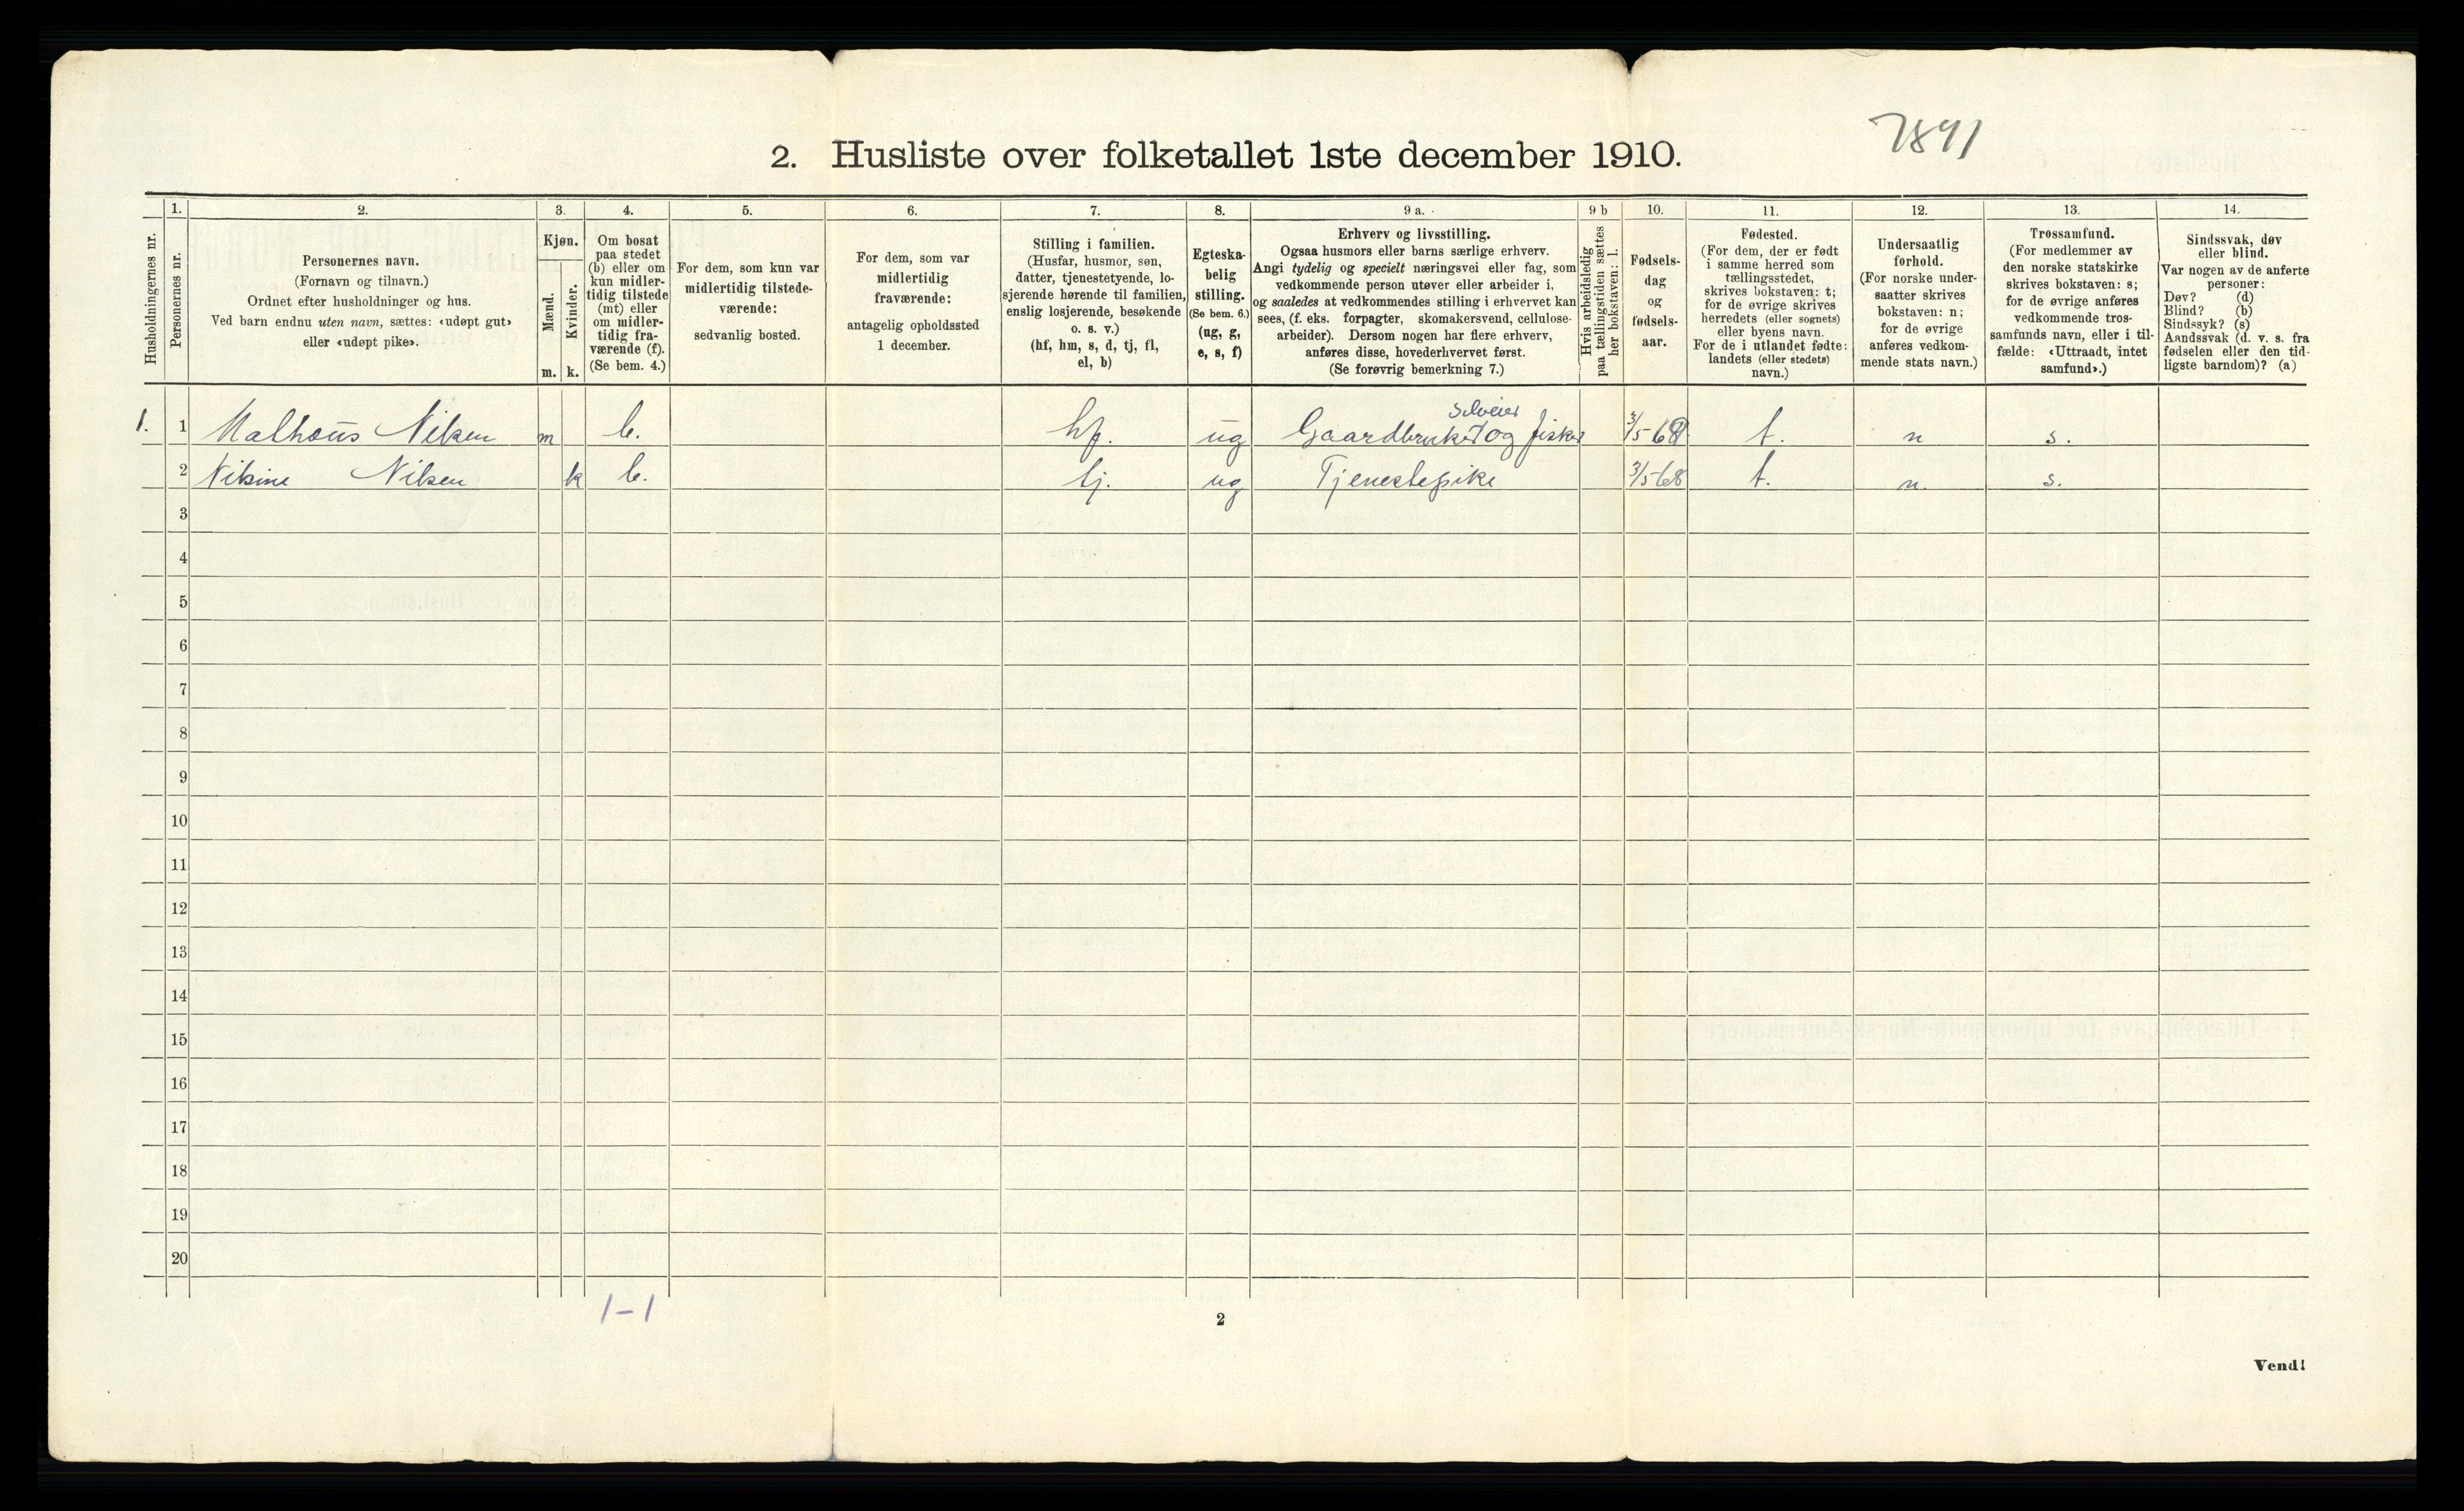 7891
2. Husliste over folketallet 1ste december 1910.
Husholdningernes nr.
1.
Personernes nr.
2.
Personernes navn.
(Fornavn og tilnavn.)
Ordnet efter husholdninger og hus.
Ved barn endnu uten navn, sættes: «udøpt gut»
eller «udøpt pike».
3.
Kjøn.
Mænd.
Kvinder.
m. k.
4.
Om bosat
paa stedet
(b) eller om
kun midler-
tidig tilstede
(mt) eller
om midler-
tidig fra-
værende (f).
(Se bem. 4.)
5.
For dem, som kun var
midlertidig tilstede-
værende:
sedvanlig bosted.
6.
For dem, som var
midlertidig
fraværende:
antagelig opholdssted
1 december.
7.
Stilling i familien.
(Husfar, husmor, søn,
datter, tjenestetyende, lo-
sjerende hørende til familien,
enslig losjerende, besøkende
o. s. v.)
(hf, hm, s, d, tj, fl,
el, b)
8.
Egteska-
belig
stilling.
(Se bem. 6.)
(ug, g,
e, s, f)
9 a.
Erhverv og livsstilling.
Ogsaa husmors eller barns særlige erhverv.
Angi tydelig og specielt næringsvei eller fag, som
vedkommende person utøver eller arbeider i,
og saaledes at vedkommendes stilling i erhvervet kan
sees, (f. eks. forpagter, skomakersvend, cellulose-
arbeider). Dersom nogen har flere erhverv,
anføres disse, hovederhvervet først.
(Se forøvrig bemerkning 7.)
9 b
Hvis arbeidsledig
paa tællingstiden sættes
her bokstaven: l.
10.
Fødsels-
dag
og
fødsels-
aar.
11.
Fødested.
(For dem, der er født
i samme herred som
tællingsstedet,
skrives bokstaven: t;
for de øvrige skrives
herredets (eller sognets)
eller byens navn.
For de i utlandet fødte:
landets (eller stedets)
navn.)
12.
Undersaatlig
forhold.
(For norske under-
saatter skrives
bokstaven: n;
for de øvrige
anføres vedkom-
mende stats navn.)
13.
Trossamfund.
(For medlemmer av
den norske statskirke
skrives bokstaven: s;
for de øvrige anføres
vedkommende tros-
samfunds navn, eller i til-
fælde: «Uttraadt, intet
samfund».)
14.
Sindssvak, døv
eller blind.
Var nogen av de anførte
personer:
Døv? (d)
Blind? (b)
Sindssyk? (s)
Aandssvak (d. v. s. fra
fødselen eller den tid-
ligste barndom)? (a)
selveier
1. 1 Malhæus Nilsen m b. hf. ug Gaardbruker og fisker 3/5-68 t. n s.
2 Nilsine Nilsen k b. tj. ug Tjenestepike 3/5-68 t. n. s.
3
4
5
6
7
8
9
10
11
12
13
14
15
16
17
18
19
20
1-1
2
Vend!